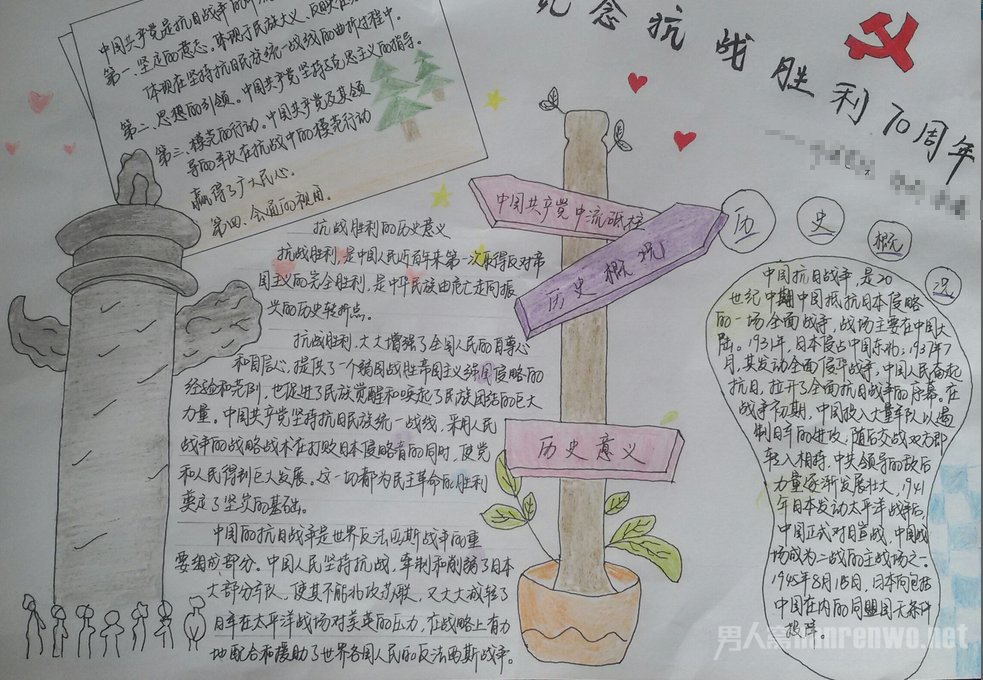 纪念抗战胜利70周年
中国共产党是抗日战争的中流
第一、坚定的意志。体现于民族大义、反映在
体现在坚持抗日民族统一战线的曲折过程中。
第二、思想的引领。中国共产党坚持马克思主义的指导。
第三、模范的行动。中国共产党及其领
导的军队在抗战中的模范行动
赢得了广大民心。
第四、全面的视角
中国共产党中流砥柱
历史概况
历史意义
抗战胜利的历史意义
抗战胜利,是中国人民近百年来第一次取得反对帝
国主义的完全胜利,是中华民族由危亡走向振
兴的历史转折点。
抗战胜利,大大增强了全国人民的自尊心
和自信心,提供了个弱国战胜帝国主义强国侵略的
经验和先例,也促进了民族觉醒和唤起了民族团结的巨大
力量。中国共产党坚持抗日民族统一战线,采用人民
战争的战略战术在打败日本侵略者的同时,使党
和人民得到巨大发展。这一切都为民主革命的胜利
奠定了坚实的基础。
中国的抗日战争是世界反法西斯战争的重
要组成部分。中国人民坚持抗战,牵制和削弱了日本
大部分军队,使其不能北攻苏联,又大大减轻了
日军在太平洋战场对美英的压力,在战略上有力
地配合和援助了世界各国人民的反法西斯战争。
历史概况
中国抗日战争,是20
世纪中期中国抵抗日本侵略
的一场全面战争,战场主要在中国大
陆。1931年,日本侵占中国东北;1937年7
月,其发动全面侵华战争,中国人民奋起
抗日,拉开了全面抗日战争的序幕。在
战争初期,中国投入大量军队以遏
制日军的进攻,随后交战双方即
转入相持,中共领导的敌后
力量逐渐发展壮大,1941
年日本发动太平洋战争后,
中国正式对日宣战,中国战
场成为二战的主战场之一。
1945年8月15日,日本向包括
中国在内的同盟国无条件
投降。
男人窝nanrenwo.net